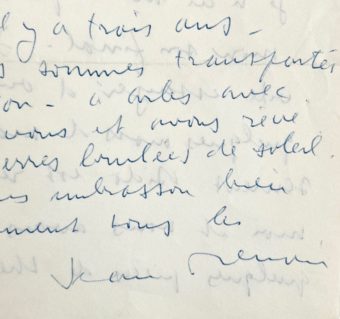 il y a trois ans -
s sommes transportés
on - à Arles avec
vous et avons rêvé
erres brulées de soleil.
us embrasson bien
ment tous les
Jean Renoir